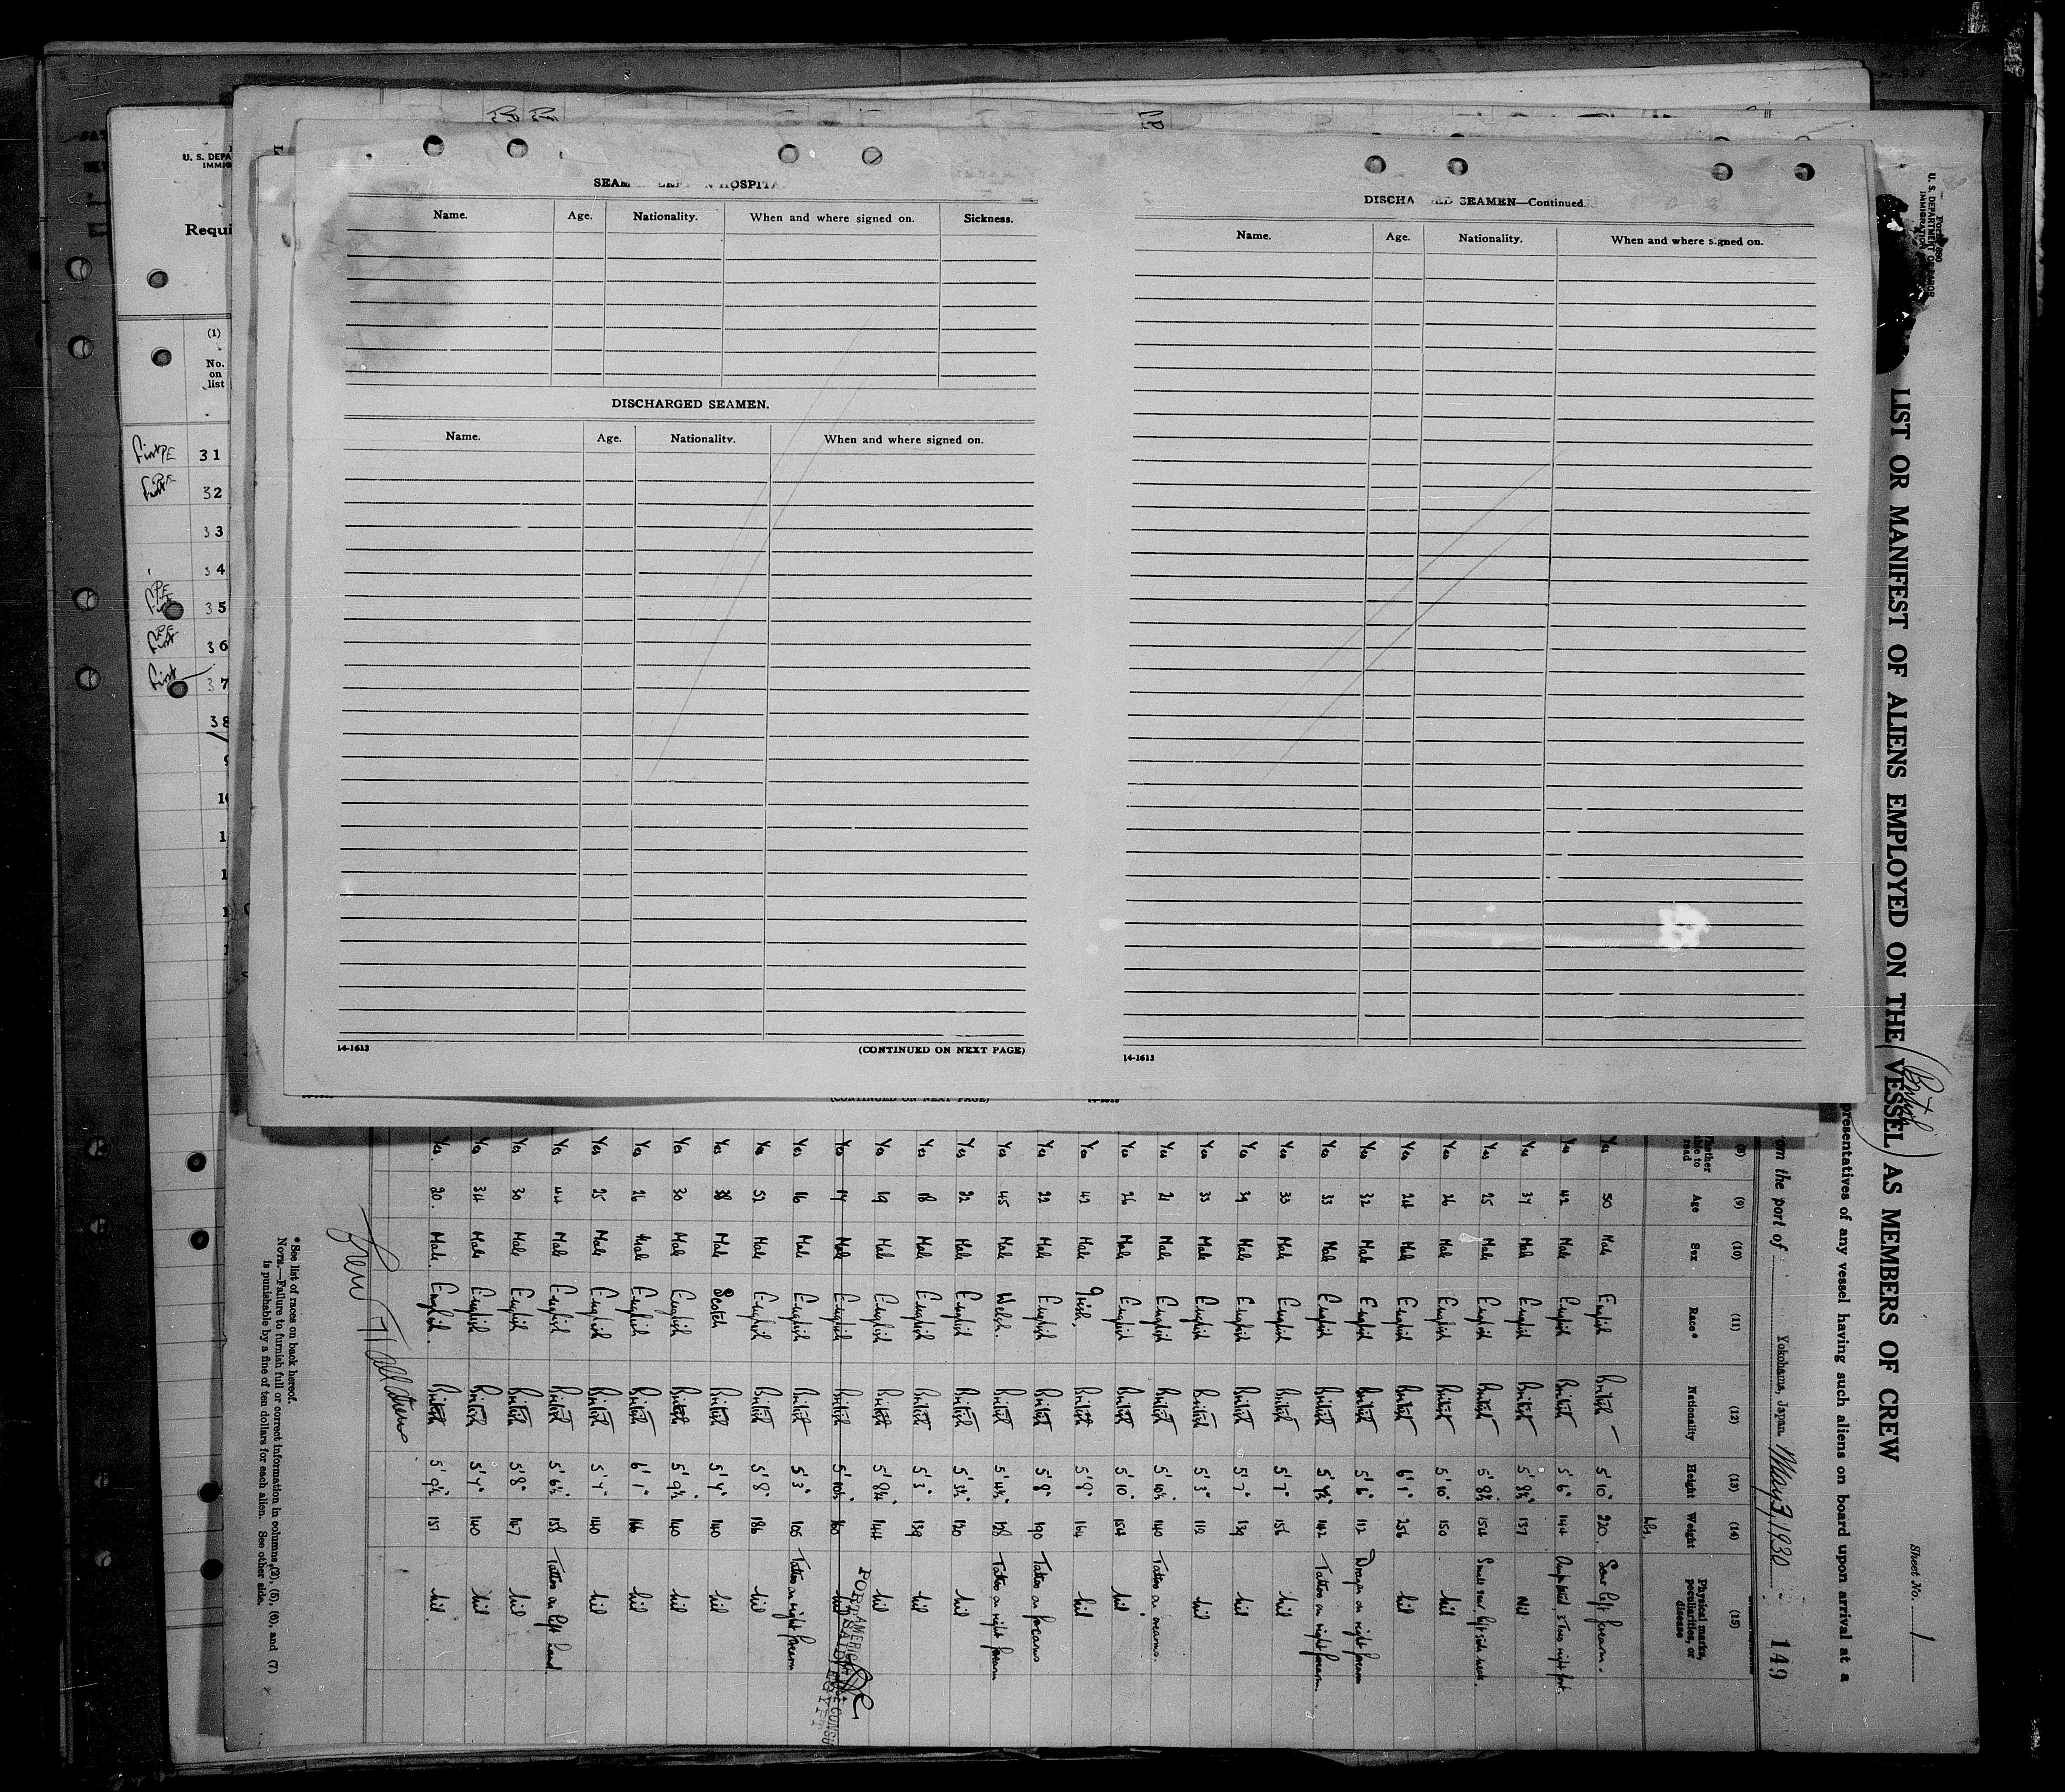 U. S. DEPA
IMMIG
Requi
(1)
No.
on
list
First PE 31
First PE 32
33
34
First PE 35
First PE 36
First 37
38
SEAMEN LEFT IN HOSPITAL
Name. Age. Nationality. When and where signed on. Sickness.
DISCHARGED SEAMEN.
Name. Age. Nationality. When and where signed on.
14-1613 (CONTINUED ON NEXT PAGE)
DISCHARGED SEAMEN—Continued
Name. Age. Nationality. When and where signed on.
14-1613
(CONTINUED ON NEXT PAGE)
Form 680
U. S. DEPARTMENT OF LABOR
IMMIGRATION
Sheet No. 1
LIST OR MANIFEST OF ALIENS EMPLOYED ON THE VESSEL AS MEMBERS OF CREW
British
presentatives of any vessel having such aliens on board upon arrival at a
om the port of Yokohama, Japan. May 7, 1930 149
(8) (9) (10) (11) (12) (13) (14) (15)
hether able to read Age Sex Race* Nationality Height Weight Physical marks, peculiarities, or disease
lbs.
Yes 50 Male English British 5' 10" 220. Scar left forearm.
Yes 42 Male English British 5' 6" 144
Yes 37 Male English British 5' 8½" 137 Nil
Yes 25 Male English British 5' 8½" 154 Small scar left side neck.
Yes 26 Male English British 5' 10" 150 Nil
Yes 24 Male English British 6' 1" 254 Nil
Yes 32 Male English British 5' 6" 112 Dragon on right forearm
Yes 33 Male English British 5' 9½" 142 Tattoo on right forearm.
Yes 33 Male English British 5' 7" 156 Nil
Yes 39 Male English British 5' 7" 139 Nil
Yes 33 Male English British 5' 3" 112 Nil
Yes 21 Male English British 5' 10½" 140 Tattoo on forearms.
Yes 26 Male English British 5' 10" 154 Nil
Yes 42 Male Irish. British 5' 8" 164 Nil
Yes 22 Male English British 5' 8" 190 Tattoo on forearms
Yes 45 Male Welsh British 5' 4½" 128 Tattoo on right forearm
Yes 22 Male English British 5' 3½" 120 Nil
Yes 18 Male English British 5' 3" 139 Nil
Yes 19 Male English British 5' 8¼" 144 Nil
Yes 17 Male English British 5' 10½" 160 Nil
Yes 16 Male English British 5' 3" 105 Tattoo on right forearm
Yes 52 Male English British 5' 8" 186 Nil
Yes 38 Male Scotch British 5' 7" 140 Nil
Yes 30 Male English British 5' 9½" 140 Nil
Yes 26 Male English British 6' 1" 166 Nil
Yes 25 Male English British 5' 7" 140 Nil
Yes 44 Male English British 5' 6½" 158 Tattoo on left hand
Yes 30 Male English British 5' 8" 147 Nil
Yes 34 Male English British 5' 7" 140 Nil
Yes. 20. Male. English. British 5' 9½" 157 Nil.
AMERICAN CONSU
PORT SAID, EGYPT
*See list of races on back hereof.
NOTE.—Failure to furnish full or correct information in columns (2), (5), (6), and (7)
is punishable by a fine of ten dollars for each alien. See other side.